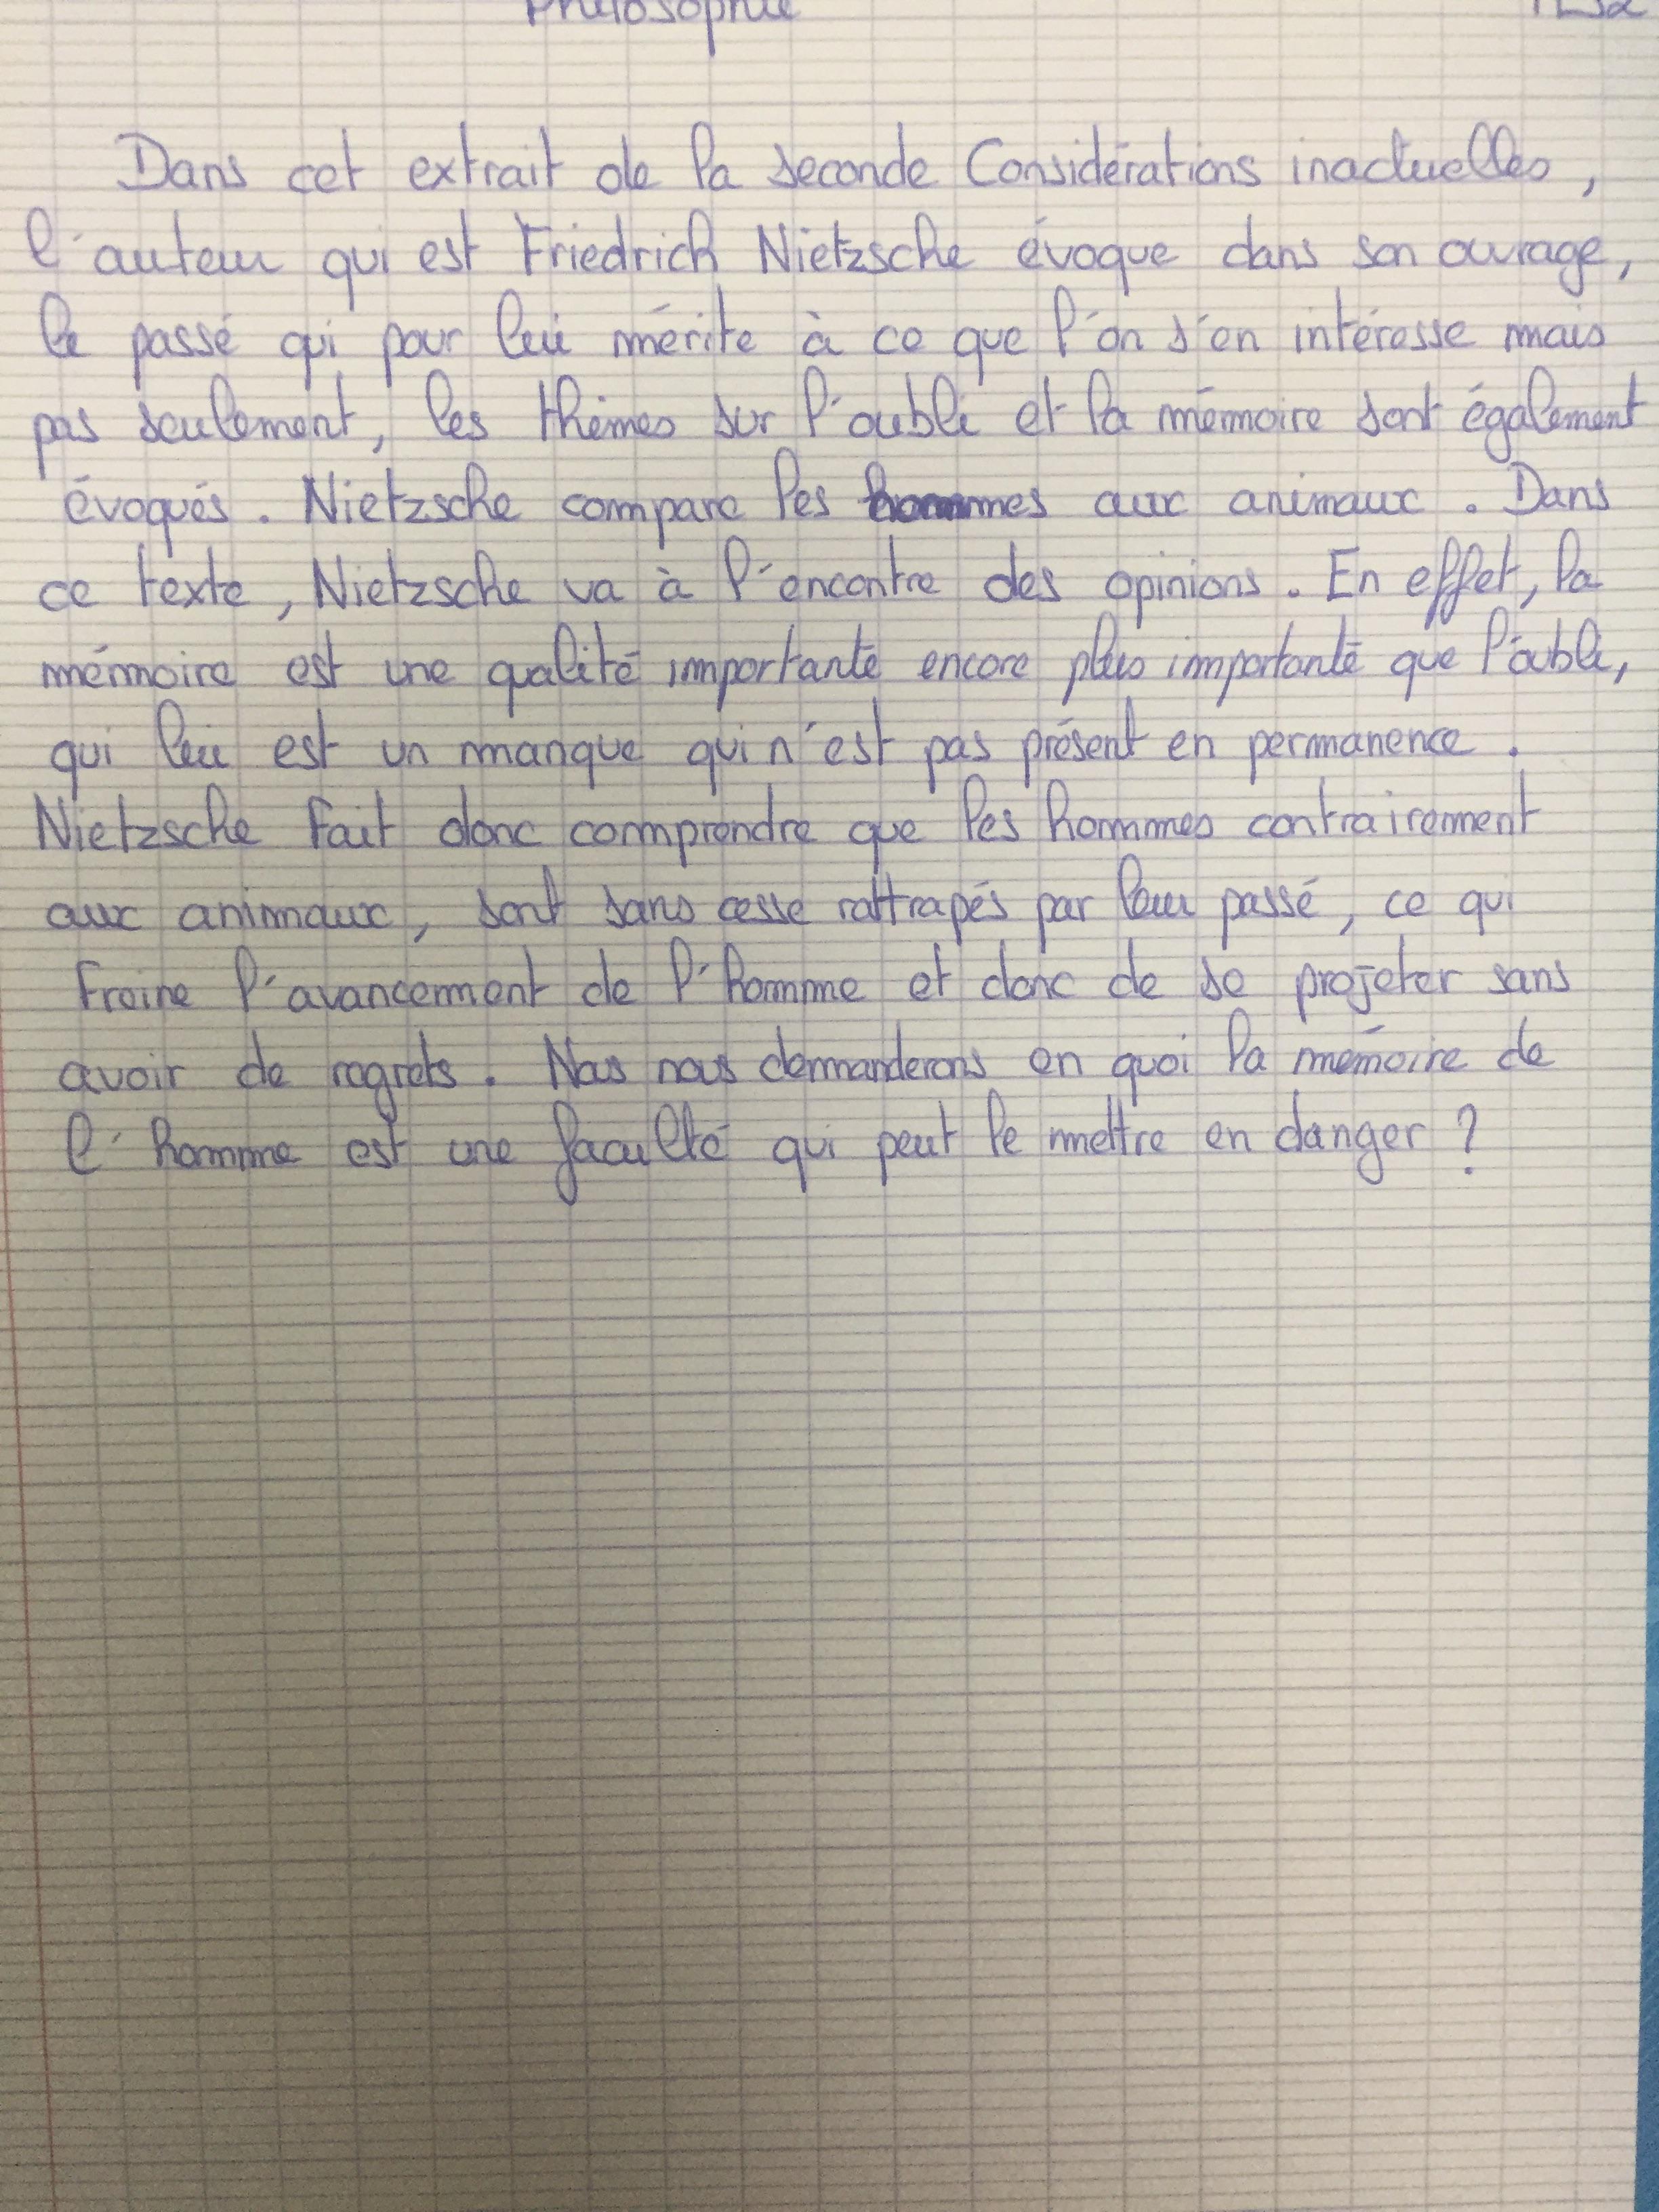 Philosophie
Dans cet extrait de la seconde Considérations inactuelles,
l'auteur qui est Friedrich Nietzsche évoque dans son ouvrage,
le passé qui pour lui mérite à ce que l'on s'en intéresse mais
pas seulement, les thèmes sur l'oubli et la mémoire sont également
évoqués. Nietzsche compare les hommes aux animaux. Dans
ce texte, Nietzsche va à l'encontre des opinions. En effet, la
mémoire est une qualité importante encore plus importante que l'oubli,
qui lui est un manque qui n'est pas présent en permanence.
Nietzsche fait donc comprendre que les hommes contrairement
aux animaux, sont sans cesse rattrapés par leur passé, ce qui
freine l'avancement de l'homme et donc de se projeter sans
avoir de regrets. Nous nous demanderons en quoi la mémoire de
l'homme est une faculté qui peut le mettre en danger ?